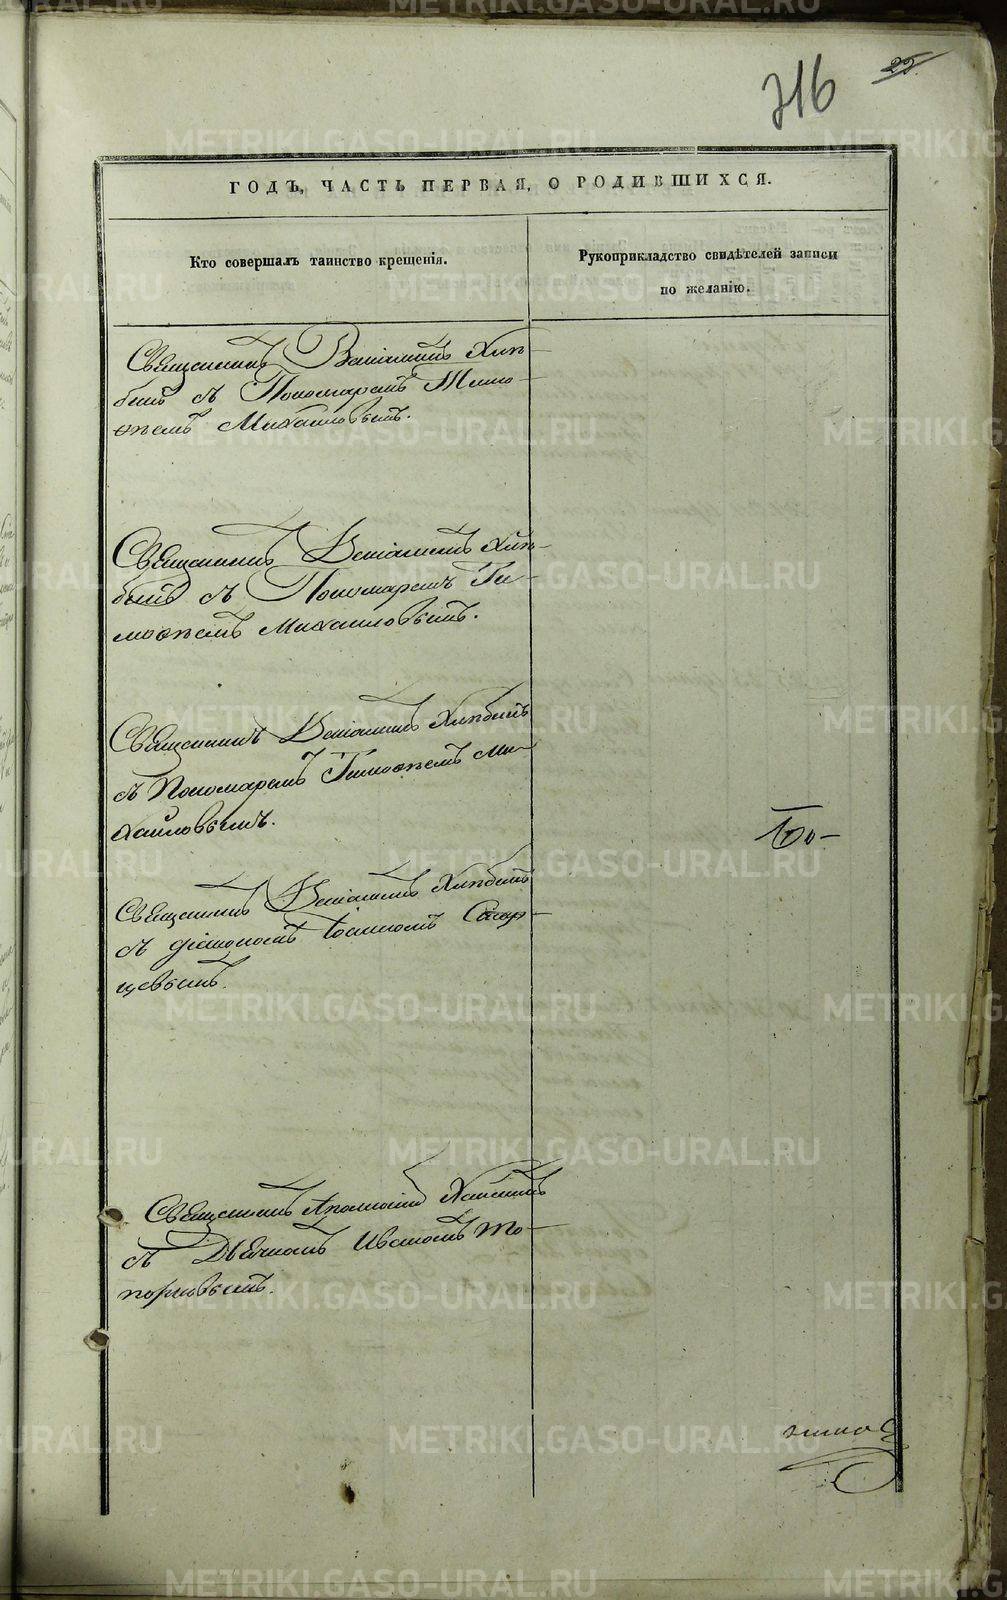 316
22.
ГОДЪ, ЧАСТЬ ПЕРВАЯ, О РОДИВШИХСЯ.
Кто совершалъ таинство крещенія.
Рукоприкладство свидѣтелей записи
по желанію.
Священникъ Веніаминъ Хлѣ-
бинъ съ Пономаремъ Тимо-
ѳеемъ Михайловымъ.
Священникъ Веніаминъ Хлѣ-
бинъ съ Пономаремъ Ти-
моѳеемъ Михайловымъ.
Священникъ Веніаминъ Хлѣбинъ
съ Пономаремъ Тимоѳеемъ Ми-
хайловымъ.
Священникъ Веніаминъ Хлѣбинъ
съ діакономъ Іоанномъ
Священникъ
съ Дьячкомъ Иваномъ То-
порковымъ.
METRIKI.GASO-URAL.RU